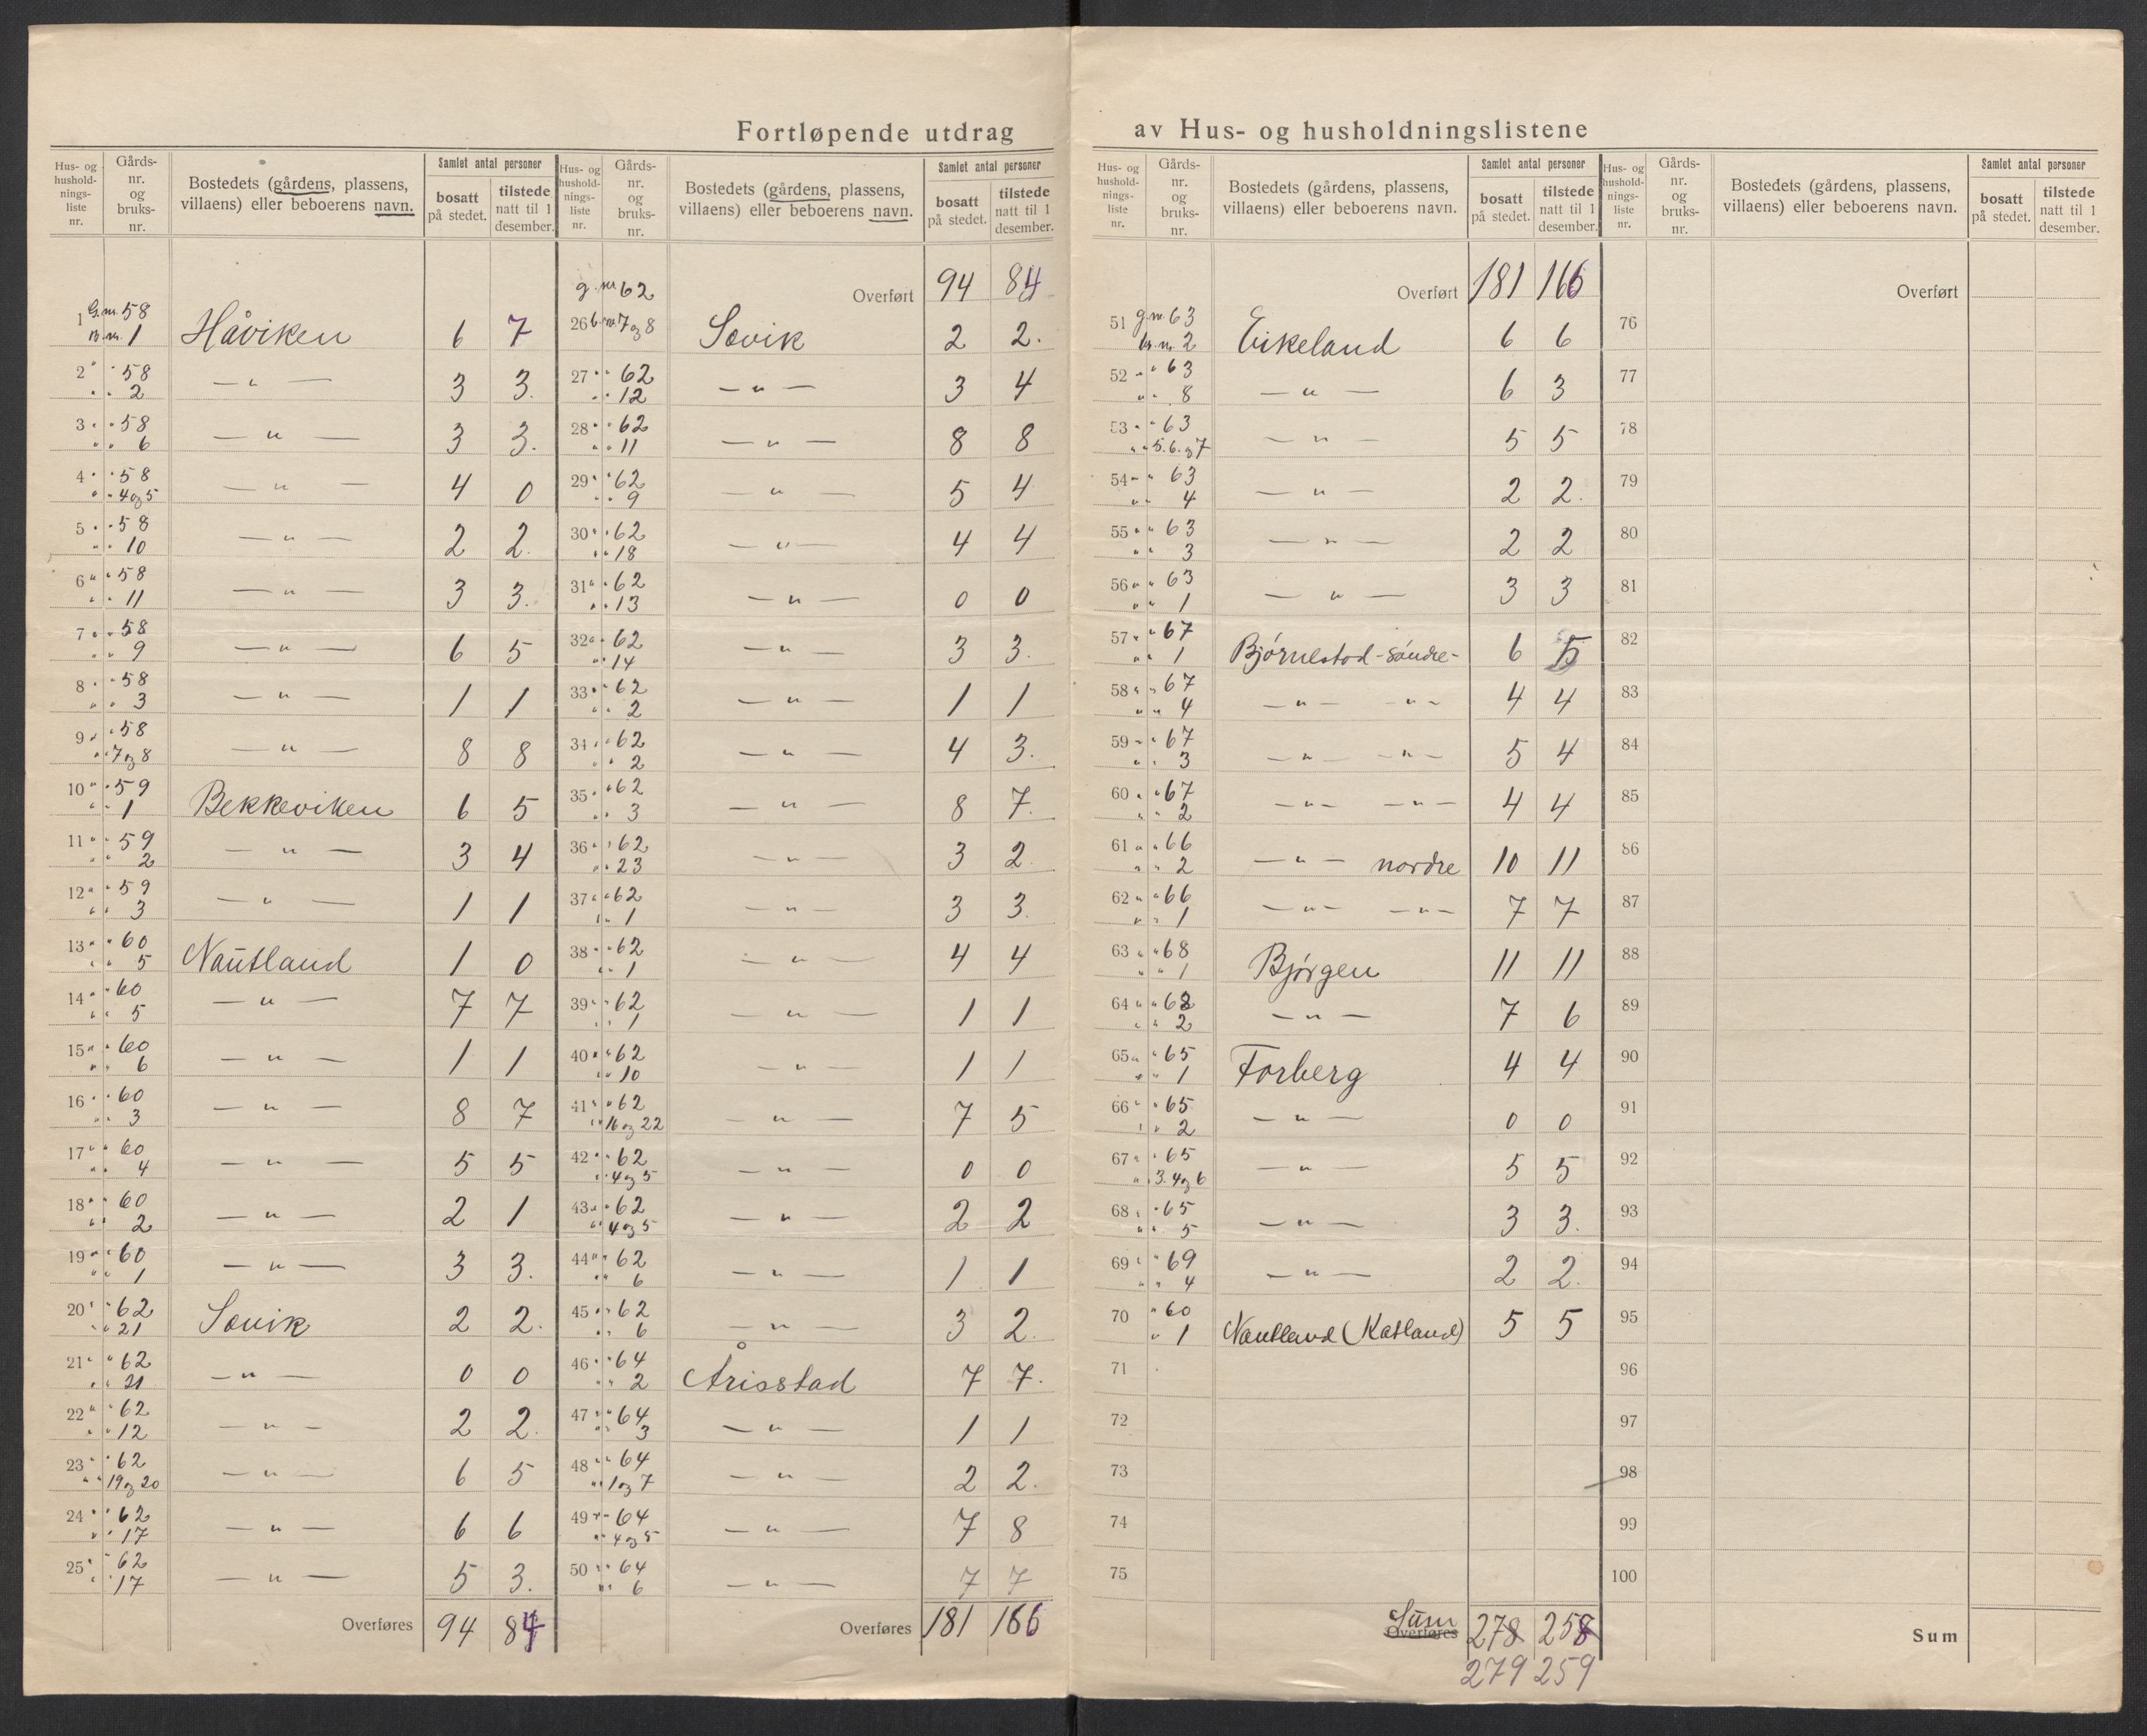 Fortløpende utdrag av Hus- og husholdningslistene
Hus- og hushold-nings-liste nr. Gårds-nr. og bruks-nr. Bostedets (gårdens, plassens, villaens) eller beboerens navn. Samlet antal personer bosatt på stedet. tilstede natt til 1 desember.
1 G.nr. 58 B.nr. 1 Håviken 6 7
2 " " 58 " " 2 — " — 3 3.
3 " " 58 " " 6 — " — 3 3.
4 " " 58 " " 4 og 5 — " — 4 0
5 " " 58 " " 10 — " — 2 2.
6 " " 58 " " 11 — " — 3 3.
7 " " 58 " " 9 — " — 6 5
8 " " 58 " " 3 — " — 1 1
9 " " 58 " " 7 og 8 — " — 8 8
10 " " 59 " " 1 Bekkeviken 6 5
11 " " 59 " " 2 — " — 3 4
12 " " 59 " " 3 — " — 1 1
13 " " 60 " " 5 Nautland 1 0
14 " " 60 " " 5 — " — 7 7
15 " " 60 " " 6 — " — 1 1
16 " " 60 " " 3 — " — 8 7
17 " " 60 " " 4 — " — 5 5
18 " " 60 " " 2 — " — 2 1
19 " " 60 " " 1 — " — 3 3.
20 " " 62 " " 21 Søvik 2 2.
21 " " 62 " " 21 — " — 0 0
22 " " 62 " " 12 — " — 2 2.
23 " " 62 " " 19 og 20 — " — 6 5
24 " " 62 " " 17 — " — 6 6
25 " " 62 " " 17 — " — 5 3.
Overføres 94 84
Hus- og hushold-nings-liste nr. Gårds-nr. og bruks-nr. Bostedets (gårdens, plassens, villaens) eller beboerens navn. Samlet antal personer bosatt på stedet. tilstede natt til 1 desember.
Overført 94 84
26 g.nr 62 b.nr. 7 og 8 Søvik 2 2.
27 " " 62 " " 12 — " — 3 4
28 " " 62 " " 11 — " — 8 8
29 " " 62 " " 9 — " — 5 4
30 " " 62 " " 18 — " — 4 4
31 " " 62 " " 13 — " — 0 0
32 " " 62 " " 14 — " — 3 3.
33 " " 62 " " 2 — " — 1 1
34 " " 62 " " 2 — " — 4 3.
35 " " 62 " " 3 — " — 8 7.
36 " " 62 " " 23 — " — 3 2
37 " " 62 " " 1 — " — 3 3.
38 " " 62 " " 1 — " — 4 4
39 " " 62 " " 1 — " — 1 1
40 " " 62 " " 10 — " — 1 1
41 " " 62 " " 16 og 22 — " — 7 5
42 " " 62 " " 4 og 5 — " — 0 0
43 " " 62 " " 4 og 5 — " — 2 2
44 " " 62 " " 6 — " — 1 1
45 " " 62 " " 6 — " — 3 2.
46 " " 64 " " 2 Årisstad 7 7.
47 " " 64 " " 3 — " — 1 1
48 " " 64 " " 1 og 7 — " — 2 2.
49 " " 64 " " 4 og 5 — " — 7 8
50 " " 64 " " 6 — " — 7 7
Overføres 181 166
Hus- og hushold-nings-liste nr. Gårds-nr. og bruks-nr. Bostedets (gårdens, plassens, villaens) eller beboerens navn. Samlet antal personer bosatt på stedet. tilstede natt til 1 desember.
Overført 181 166
51 g.nr. 63 br.nr. 2 Eikeland 6 6
52 " " 63 " " 8 — " — 6 3
53 " " 63 " " 5. 6. og 7 — " — 5 5
54 " " 63 " " 4 — " — 2 2.
55 " " 63 " " 3 — " — 2 2
56 " " 63 " " 1 — " — 3 3
57 " " 67 " " 1 Bjørnestad - søndre - 6 5
58 " " 67 " " 4 — " — — " — 4 4
59 " " 67 " " 3 — " — — " — 5 4
60 " " 67 " " 2 — " — — " — 4 4
61 " " 66 " " 2 — " — nordre 10 11
62 " " 66 " " 1 — " — — " — 7 7
63 " " 68 " " 1 Bjørgen 11 11
64 " " 68 " " 2 — " — 7 6
65 " " 65 " " 1 Forberg 4 4
66 " " 65 " " 2 — " — 0 0
67 " " 65 " " 3. 4 og 6 — " — 5 5
68 " " 65 " " 5 — " — 3 3.
69 " " 69 " " 4 — " — 2 2.
70 " 60 " 1 Nautland (Katland) 5 5
71
72
73
74
75
Sum Overføres 278 258
279 259
Hus- og hushold-nings-liste nr. Gårds-nr. og bruks-nr. Bostedets (gårdens, plassens, villaens) eller beboerens navn. Samlet antal personer bosatt på stedet. tilstede natt til 1 desember.
Overført
76
77
78
79
80
81
82
83
84
85
86
87
88
89
90
91
92
93
94
95
96
97
98
99
100
Sum